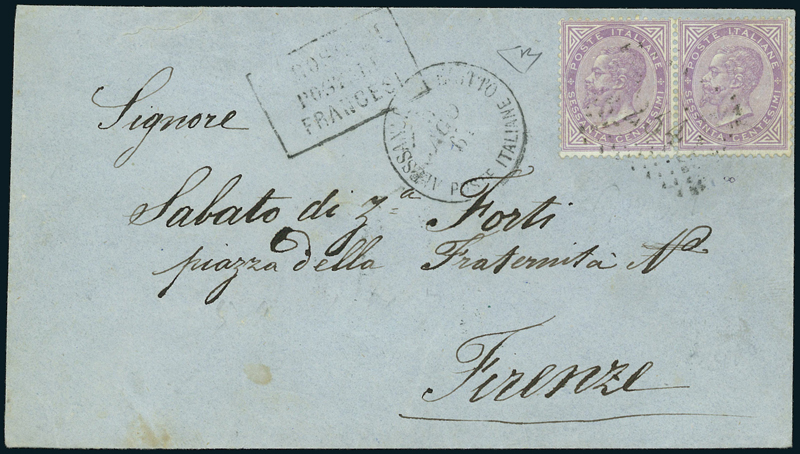 POSTALI
FRANCESI
ALESSANDRIA EGITTO
POSTE ITALIANE
AGO
67
POSTE ITALIANE
SESSANTA CENTESIMI
POSTE ITALIANE
SESSANTA CENTESIMI
Signore
Sabato di Za Forti
piazza della Fraternità No
Firenze